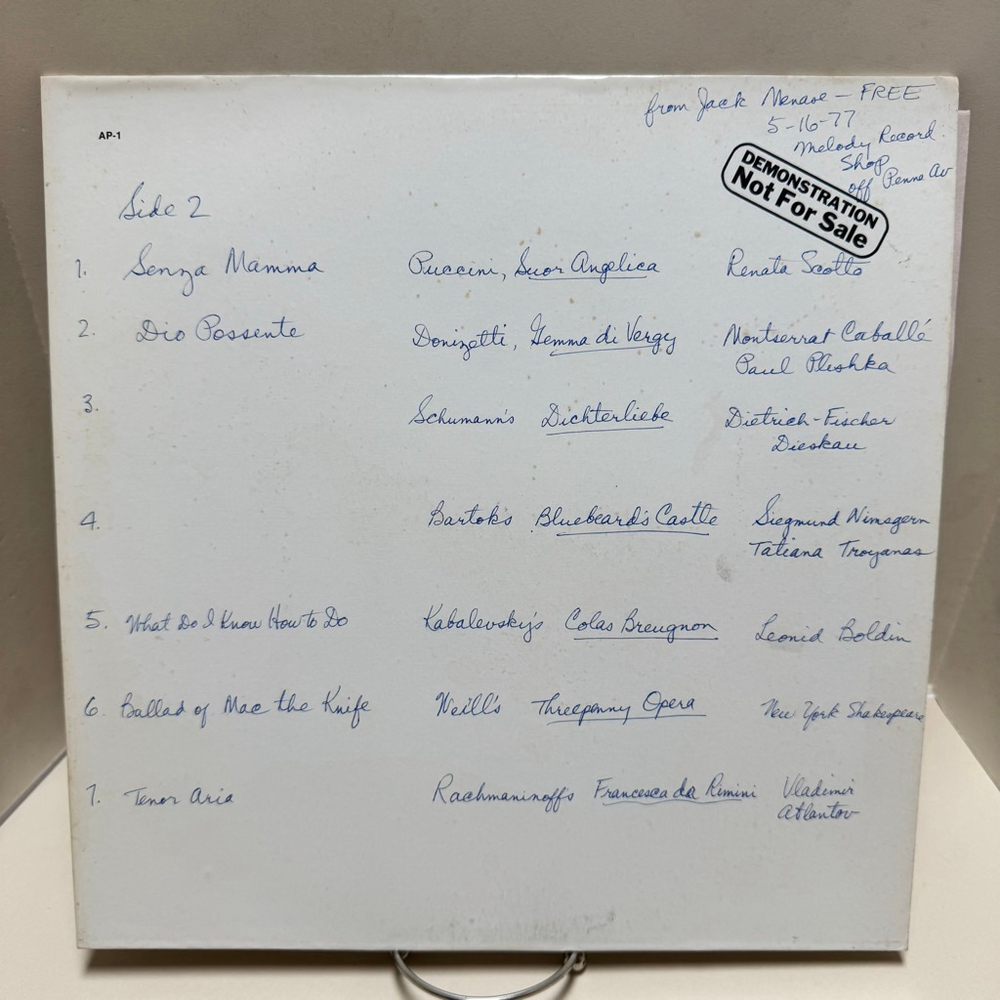 from Jack Menase — FREE
5-16-77
Melody Record
Shop
off Penna Av
AP-1
DEMONSTRATION
Not For Sale
Side 2
1. Senza Mamma Puccini, Suor Angelica Renata Scotto
2. Dio Possente Donizetti, Gemma di Vergy Montserrat Caballé
Paul Plishka
3. Schumann's Dichterliebe Dietrich-Fischer
Dieskau
4. Bartok's Bluebeard's Castle Siegmund Nimsgern
Tatiana Troyanas
5. What Do I Know How to Do Kabalevsky's Colas Breugnon Leonid Boldin
6. Ballad of Mac the Knife Weill's Threepenny Opera New York Shakespeare
7. Tenor Aria Rachmaninoff's Francesca da Rimini Vladimir
Atlantov